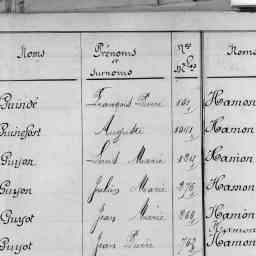 Noms Prénoms et surnoms Nos Mles Noms
Guindé François Pierre 101 Hamon
Guinefort Auguste Hamon
Guyon Louis Marie 184 Hamon
Guyon Julien Marie 276 Hamon
Guyot Jean Marie 266 Hamon
Guyot Jean Pierre 762 Hamon